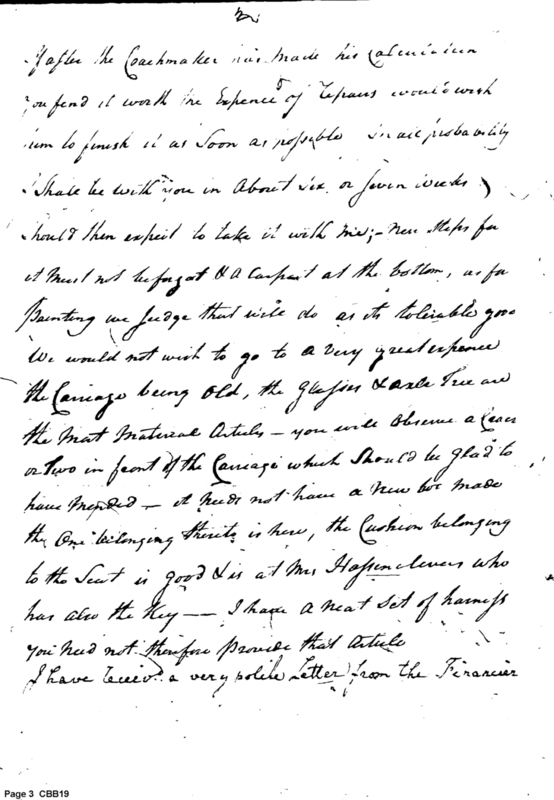 3
If after the Coachmaker has made his Calculation
you find it worth the Expence of Repairs would wish
him to finish it as Soon as possible in all probability
I Shall be with you in About Six or Seven weeks
Should then expect to take it with me; - New Steps for
it Must not be forgot & a Carpet at the bottom, as for
Painting we judge that will do as its tolerable good
We would not wish to go to a very great expence
the Carriage being Old, the Glasses & axle Tree are
the Most Material Articles - you will Observe a Crack
or two in front of the Carriage which Should be glad to
have Mended - it needs not have a New box made
the One belonging thereto is here, the Cushion belonging
to the Seat is good & is at Mrs Hassenclevers who
has also the Key - I have a neat Set of harness
you need not therefore provide that Article
I have receivd. a very polite Letter from the Financier
Page 3 CBB19